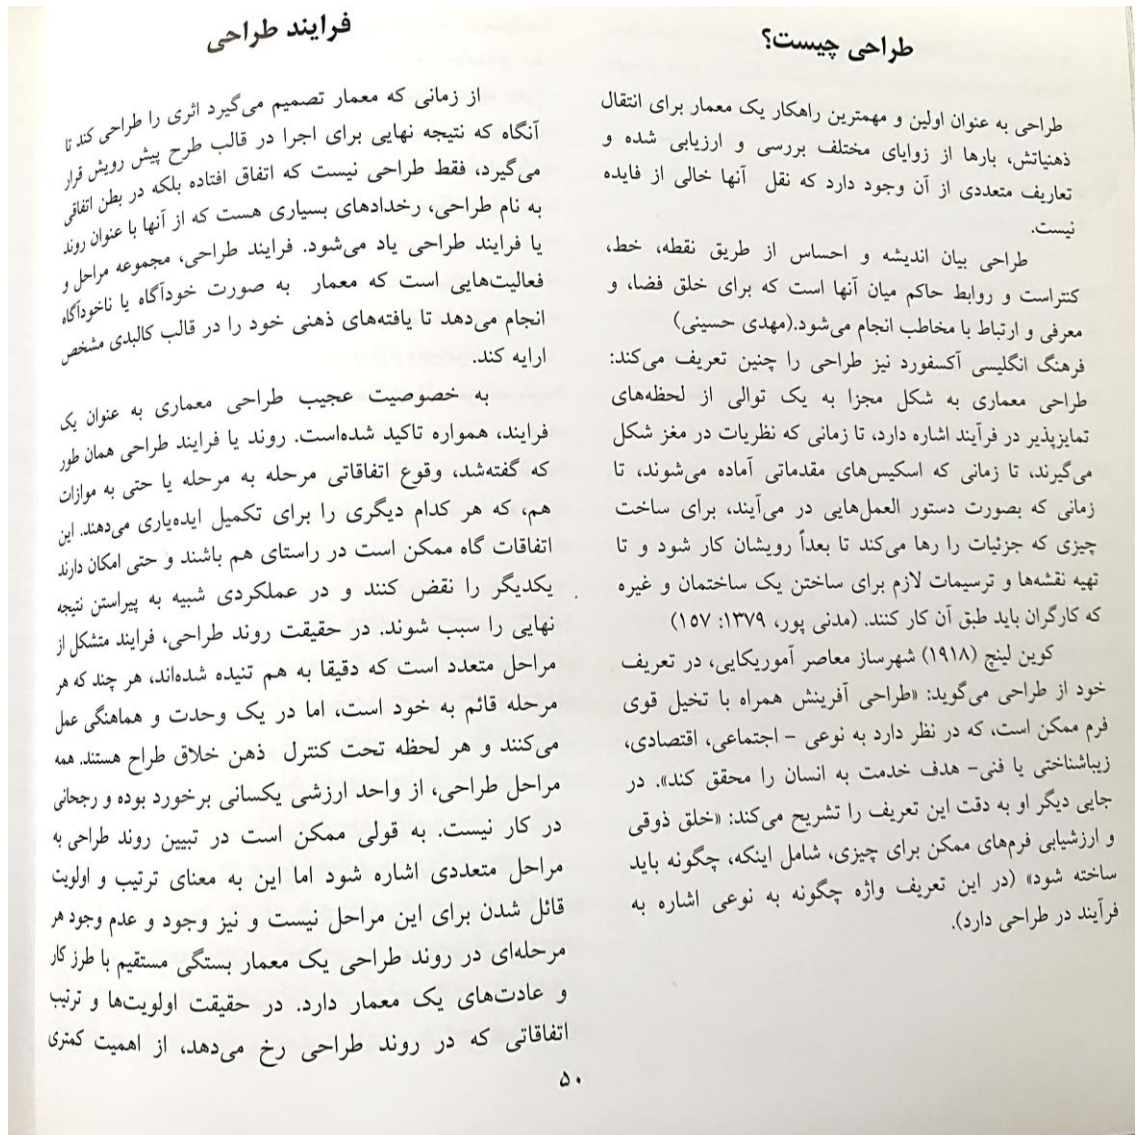 طراحی چیست؟
طراحی به عنوان اولین و مهمترین راهکار یک معمار برای انتقال
ذهنیاتش، بارها از زوایای مختلف بررسی و ارزیابی شده و
تعاریف متعددی از آن وجود دارد که نقل آنها خالی از فایده
نیست.
طراحی بیان اندیشه و احساس از طریق نقطه، خط،
کنتراست و روابط حاکم میان آنها است که برای خلق فضا، و
معرفی و ارتباط با مخاطب انجام می‌شود.(مهدی حسینی)
فرهنگ انگلیسی آکسفورد نیز طراحی را چنین تعریف می‌کند:
طراحی معماری به شکل مجزا به یک توالی از لحظه‌های
تمایزپذیر در فرآیند اشاره دارد، تا زمانی که نظریات در مغز شکل
می‌گیرند، تا زمانی که اسکیس‌های مقدماتی آماده می‌شوند، تا
زمانی که بصورت دستور العمل‌هایی در می‌آیند، برای ساخت
چیزی که جزئیات را رها می‌کند تا بعداً رویشان کار شود و تا
تهیه نقشه‌ها و ترسیمات لازم برای ساختن یک ساختمان و غیره
که کارگران باید طبق آن کار کنند. (مدنی پور، ۱۳۷۹: ۱۵۷)
کوین لینچ (۱۹۱۸) شهرساز معاصر آموریکایی، در تعریف
خود از طراحی می‌گوید: «طراحی آفرینش همراه با تخیل قوی
فرم ممکن است، که در نظر دارد به نوعی - اجتماعی، اقتصادی،
زیباشناختی یا فنی- هدف خدمت به انسان را محقق کند». در
جایی دیگر او به دقت این تعریف را تشریح می‌کند: «خلق ذوقی
و ارزشیابی فرم‌های ممکن برای چیزی، شامل اینکه، چگونه باید
ساخته شود» (در این تعریف واژه چگونه به نوعی اشاره به
فرآیند در طراحی دارد).
فرایند طراحی
از زمانی که معمار تصمیم می‌گیرد اثری را طراحی کند تا
آنگاه که نتیجه نهایی برای اجرا در قالب طرح پیش رویش قرار
می‌گیرد، فقط طراحی نیست که اتفاق افتاده بلکه در بطن اتفاقی
به نام طراحی، رخدادهای بسیاری هست که از آنها با عنوان روند
یا فرایند طراحی یاد می‌شود. فرایند طراحی، مجموعه مراحل و
فعالیت‌هایی است که معمار به صورت خودآگاه یا ناخودآگاه
انجام می‌دهد تا یافته‌های ذهنی خود را در قالب کالبدی مشخص
ارایه کند.
به خصوصیت عجیب طراحی معماری به عنوان یک
فرایند، همواره تاکید شده‌است. روند یا فرایند طراحی همان طور
که گفته‌شد، وقوع اتفاقاتی مرحله به مرحله یا حتی به موازات
هم، که هر کدام دیگری را برای تکمیل ایده‌یاری می‌دهند. این
اتفاقات گاه ممکن است در راستای هم باشند و حتی امکان دارند
یکدیگر را نقض کنند و در عملکردی شبیه به پیراستن نتیجه
نهایی را سبب شوند. در حقیقت روند طراحی، فرایند متشکل از
مراحل متعدد است که دقیقا به هم تنیده شده‌اند، هر چند که هر
مرحله قائم به خود است، اما در یک وحدت و هماهنگی عمل
می‌کنند و هر لحظه تحت کنترل ذهن خلاق طراح هستند. همه
مراحل طراحی، از واحد ارزشی یکسانی برخورد بوده و رجحانی
در کار نیست. به قولی ممکن است در تبیین روند طراحی به
مراحل متعددی اشاره شود اما این به معنای ترتیب و اولویت
قائل شدن برای این مراحل نیست و نیز وجود و عدم وجود هر
مرحله‌ای در روند طراحی یک معمار بستگی مستقیم با طرز کار
و عادت‌های یک معمار دارد. در حقیقت اولویت‌ها و ترتیب
اتفاقاتی که در روند طراحی رخ می‌دهد، از اهمیت کمتری
۵۰